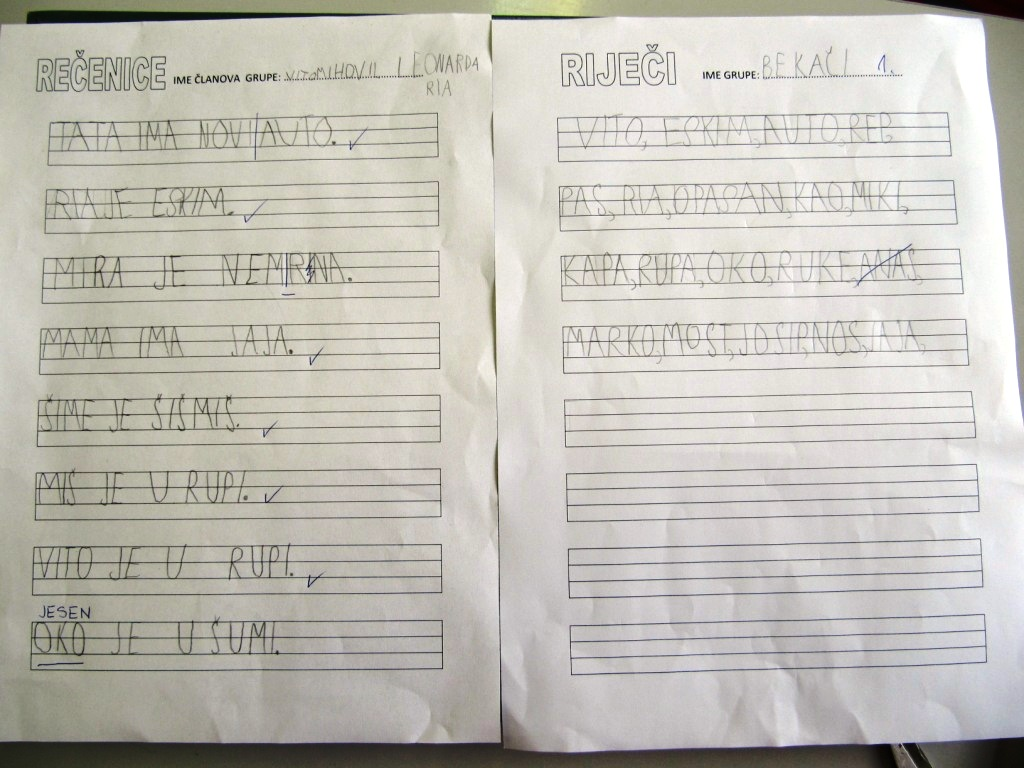 REČENICE IME ČLANOVA GRUPE: VITO MIHOVIL I LEONARDA
RIA
TATA IMA NOVI AUTO.
RIA JE ESKIM.
MIRA JE NEMIRNA.
MAMA IMA JAJA.
ŠIME JE ŠIŠMIŠ.
MIŠ JE U RUPI.
VITO JE U RUPI.
JESEN
OKO JE U ŠUMI.
RIJEČI IME GRUPE: BEKAČI 1.
VITO, ESKIM, AUTO, REP,
PAS, RIA, OPASAN, KAO, MIKI,
KAPA, RUPA, OKO, RUKE, ANAS,
MARKO, MOST, JOSIP, NOS, JAJA,